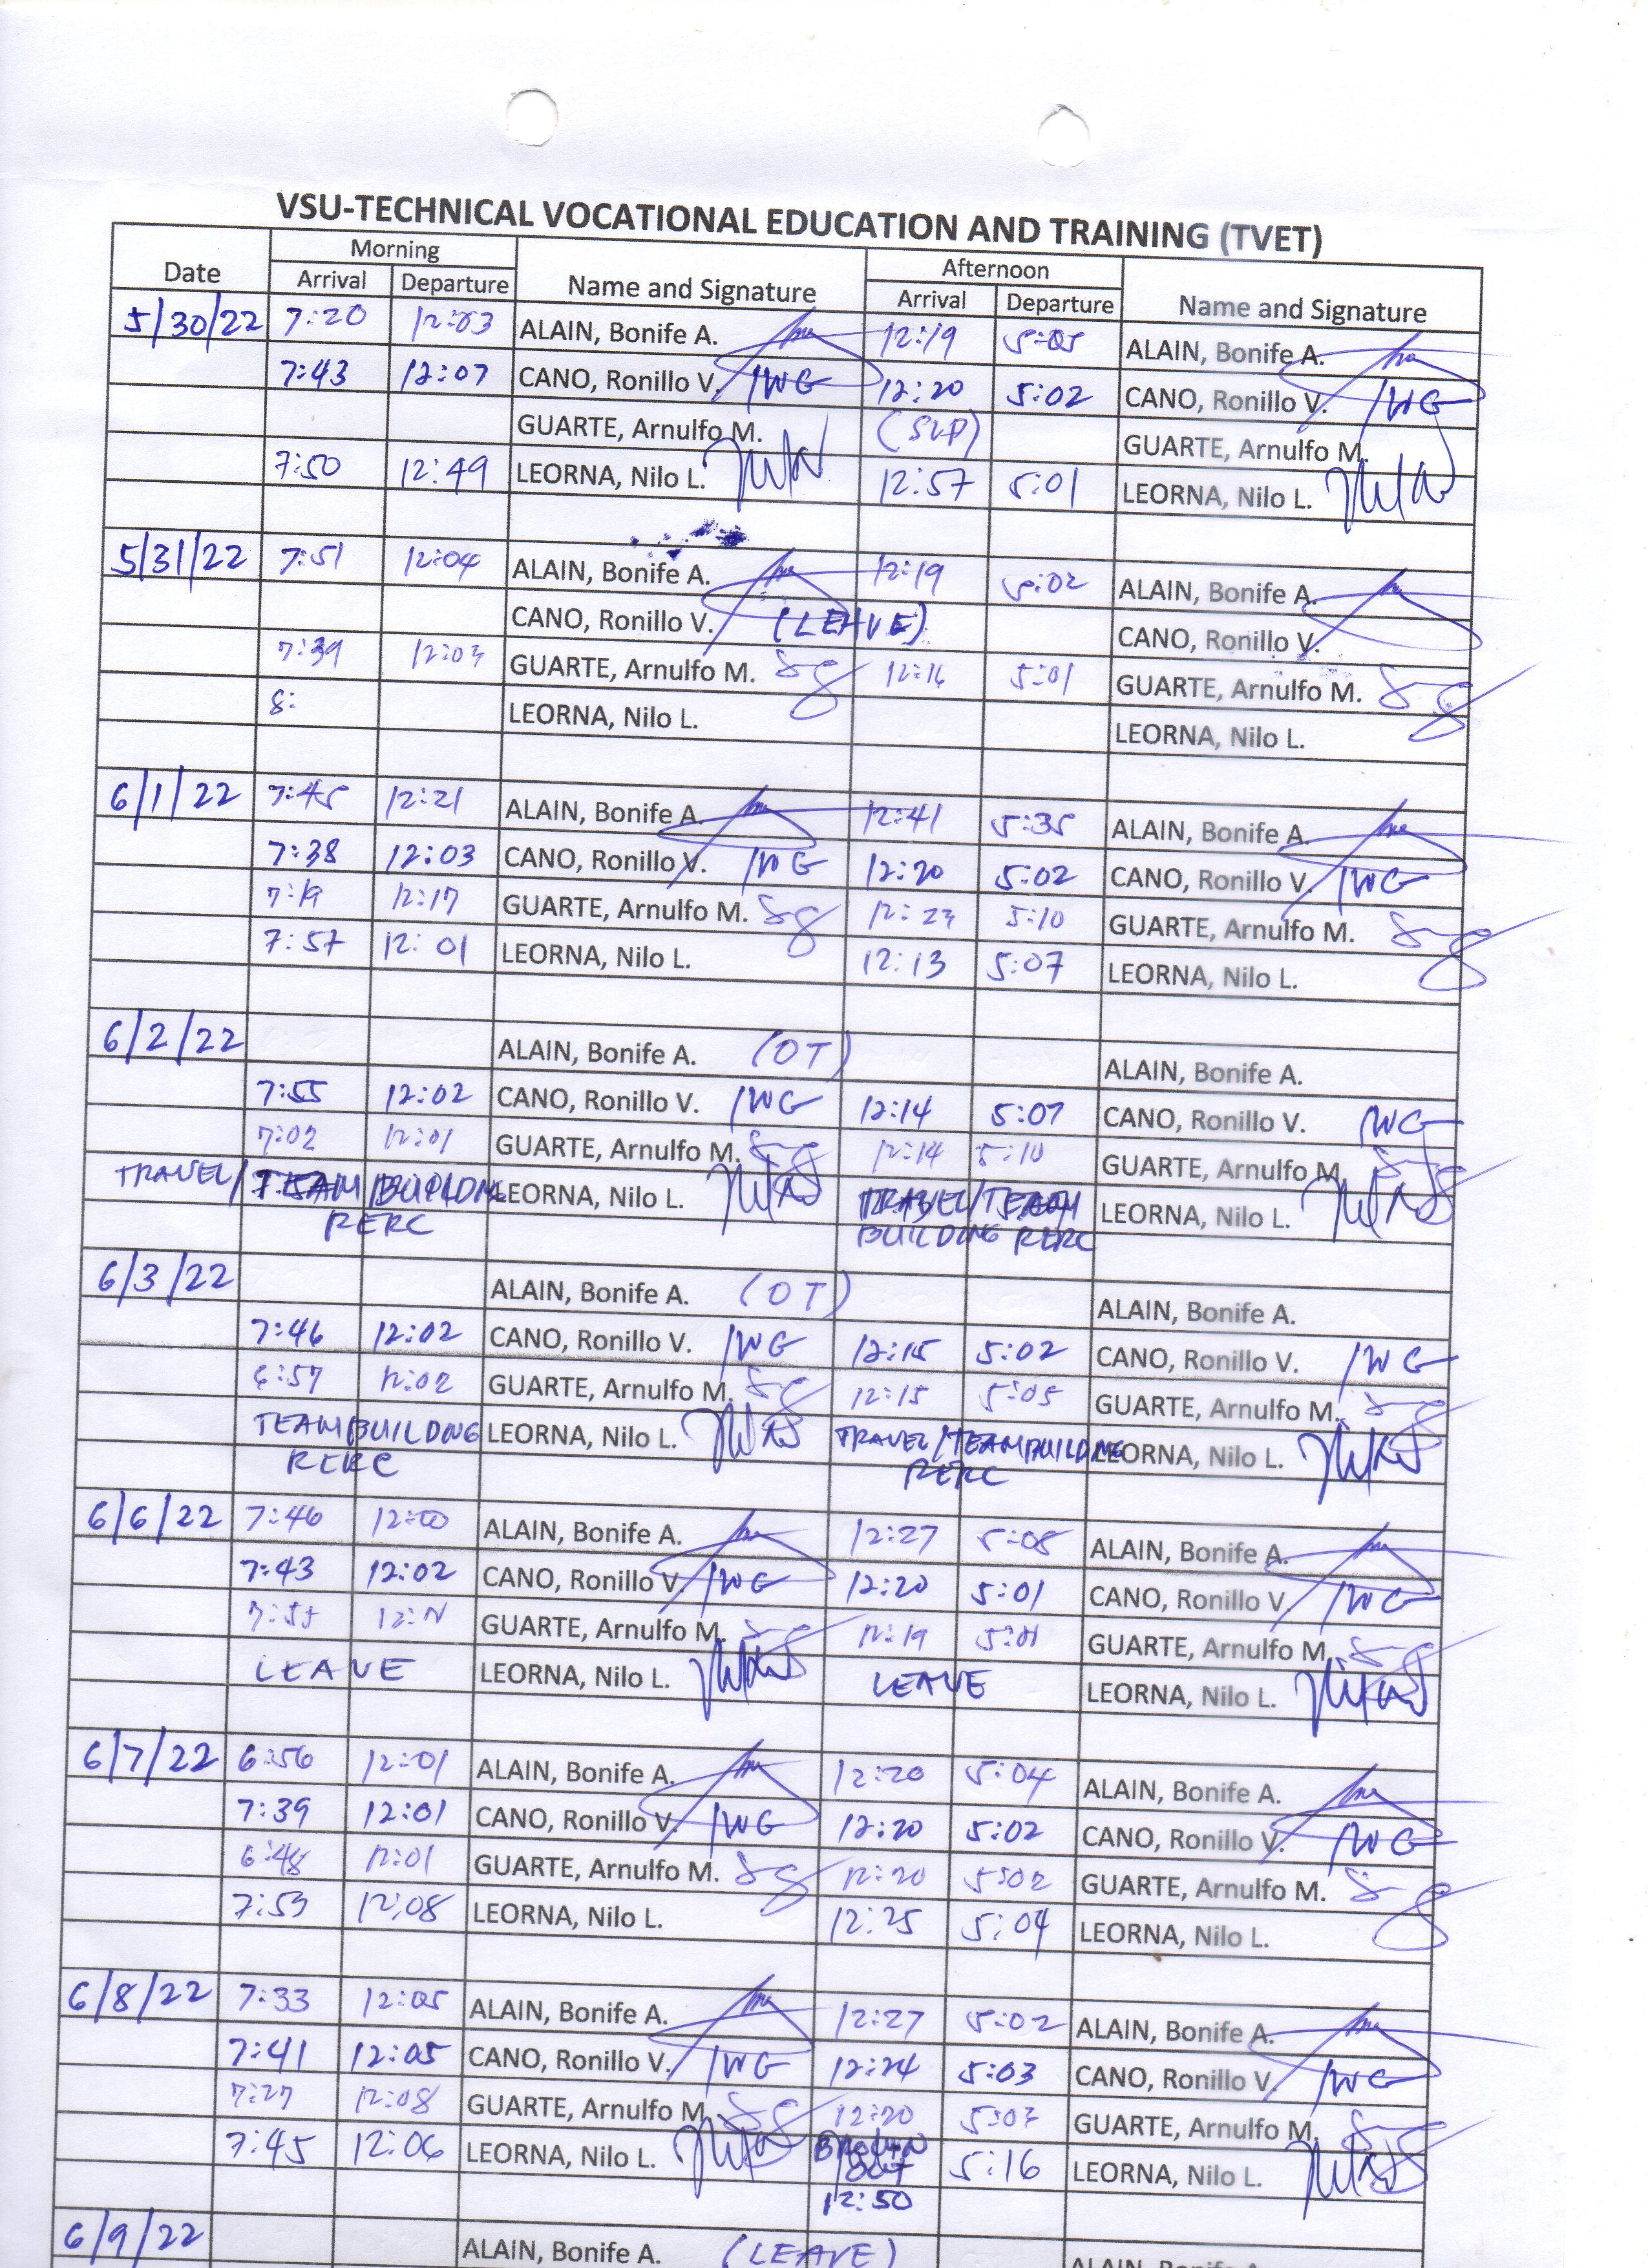 VSU-TECHNICAL VOCATIONAL EDUCATION AND TRAINING (TVET)
Date Morning Name and Signature Afternoon Name and Signature
Arrival Departure Arrival Departure
5/30/22 7:20 12:03 ALAIN, Bonife A. 12:19 5:05 ALAIN, Bonife A.
7:43 12:07 CANO, Ronillo V. 12:20 5:02 CANO, Ronillo V.
GUARTE, Arnulfo M. (SLP) GUARTE, Arnulfo M.
7:50 12:49 LEORNA, Nilo L. 12:57 5:01 LEORNA, Nilo L.
5/31/22 7:51 12:04 ALAIN, Bonife A. 12:19 5:02 ALAIN, Bonife A.
CANO, Ronillo V. (LEAVE) CANO, Ronillo V.
7:39 12:03 GUARTE, Arnulfo M. 12:16 5:01 GUARTE, Arnulfo M.
8: LEORNA, Nilo L. LEORNA, Nilo L.
6/1/22 7:45 12:21 ALAIN, Bonife A. 12:41 5:35 ALAIN, Bonife A.
7:38 12:03 CANO, Ronillo V. 12:20 5:02 CANO, Ronillo V.
7:19 12:17 GUARTE, Arnulfo M. 12:23 5:10 GUARTE, Arnulfo M.
7:57 12:01 LEORNA, Nilo L. 12:13 5:07 LEORNA, Nilo L.
6/2/22 ALAIN, Bonife A. (OT) ALAIN, Bonife A.
7:55 12:02 CANO, Ronillo V. 12:14 5:07 CANO, Ronillo V.
7:02 12:01 GUARTE, Arnulfo M. 12:14 5:10 GUARTE, Arnulfo M.
TRAVEL/TEAM BUILDING LEORNA, Nilo L. TRAVEL/TEAM LEORNA, Nilo L.
RERC BUILDING RERC
6/3/22 ALAIN, Bonife A. (OT) ALAIN, Bonife A.
7:46 12:02 CANO, Ronillo V. 12:15 5:02 CANO, Ronillo V.
6:57 12:02 GUARTE, Arnulfo M. 12:15 5:05 GUARTE, Arnulfo M.
TEAMBUILDING LEORNA, Nilo L. TRAVEL/TEAMBUILDING LEORNA, Nilo L.
RERC RERC
6/6/22 7:46 12:00 ALAIN, Bonife A. 12:27 5:08 ALAIN, Bonife A.
7:43 12:02 CANO, Ronillo V. 12:20 5:01 CANO, Ronillo V.
7:55 GUARTE, Arnulfo M. 12:19 5:01 GUARTE, Arnulfo M.
LEAVE LEORNA, Nilo L. LEAVE LEORNA, Nilo L.
6/7/22 6:56 12:01 ALAIN, Bonife A. 12:20 5:04 ALAIN, Bonife A.
7:39 12:01 CANO, Ronillo V. 12:20 5:02 CANO, Ronillo V.
6:48 12:01 GUARTE, Arnulfo M. 12:20 5:02 GUARTE, Arnulfo M.
7:53 12:08 LEORNA, Nilo L. 12:25 5:04 LEORNA, Nilo L.
6/8/22 7:33 12:05 ALAIN, Bonife A. 12:27 5:02 ALAIN, Bonife A.
7:41 12:05 CANO, Ronillo V. 12:24 5:03 CANO, Ronillo V.
7:27 12:08 GUARTE, Arnulfo M. 12:20 5:03 GUARTE, Arnulfo M.
7:45 12:06 LEORNA, Nilo L. BROWN OUT 5:16 LEORNA, Nilo L.
12:50
6/9/22 ALAIN, Bonife A. (LEAVE) ALAIN, Bonife A.